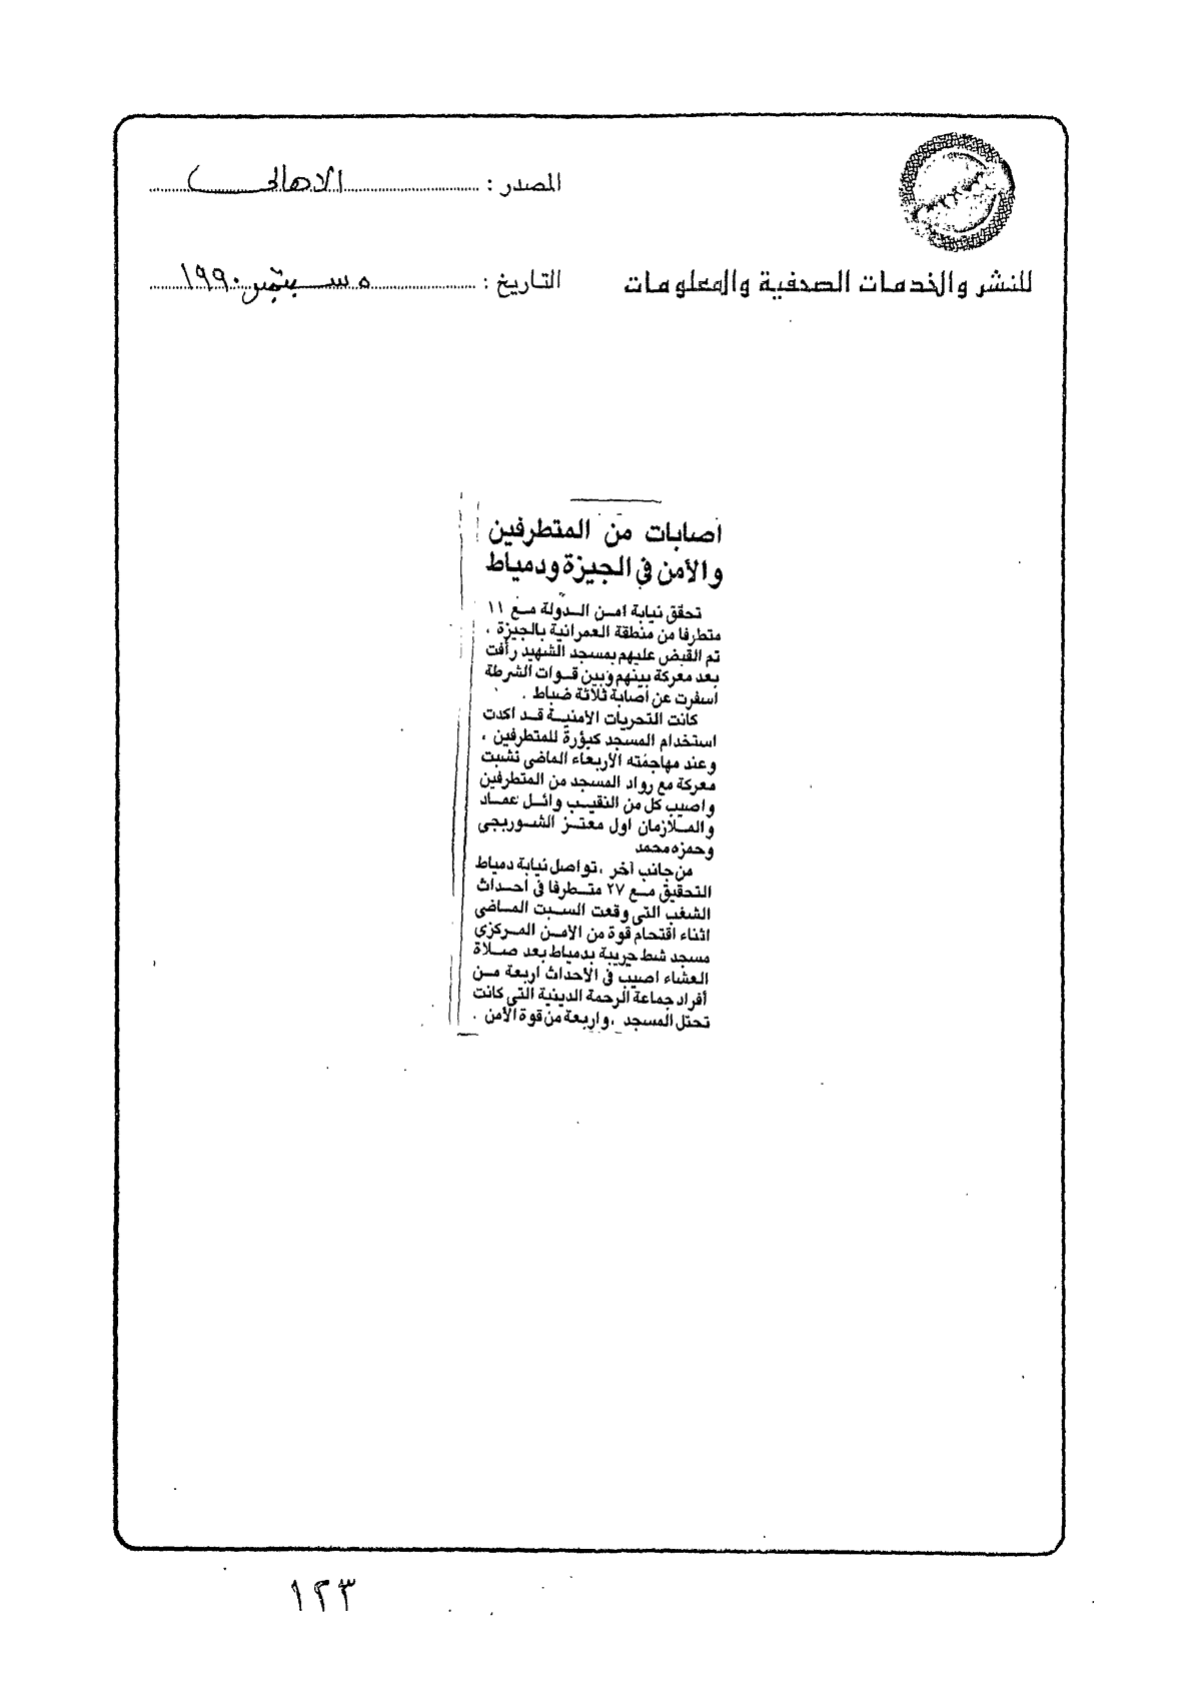 المصدر : الاهالى
للنشر والخدمات الصحفية والمعلومات
التاريخ : ٥ سبتمبر ١٩٩٠
اصابات من المتطرفين
والأمن في الجيزة ودمياط
تحقق نيابة امن الدولة مع ١١
متطرفا من منطقة العمرانية بالجيزة ،
تم القبض عليهم بمسجد الشهيد رأفت
بعد معركة بينهم وبين قوات الشرطة
اسفرت عن اصابة ثلاثة ضباط .
كانت التحريات الأمنية قد اكدت
استخدام المسجد كبؤرة للمتطرفين ،
وعند مهاجمته الأربعاء الماضى نشبت
معركة مع رواد المسجد من المتطرفين
واصيب كل من النقيب وائل عماد
والملازمان اول معتز الشوربجى
وحمزه محمد
من جانب آخر ، تواصل نيابة دمياط
التحقيق مع ٢٧ متطرفا في أحداث
الشغب التى وقعت السبت الماضى
اثناء اقتحام قوة من الأمن المركزى
مسجد شط جريبة بدمياط بعد صلاة
العشاء اصيب في الأحداث اربعة من
أفراد جماعة الرحمة الدينية التى كانت
تحتل المسجد ، واربعة من قوة الأمن .
١٢٣